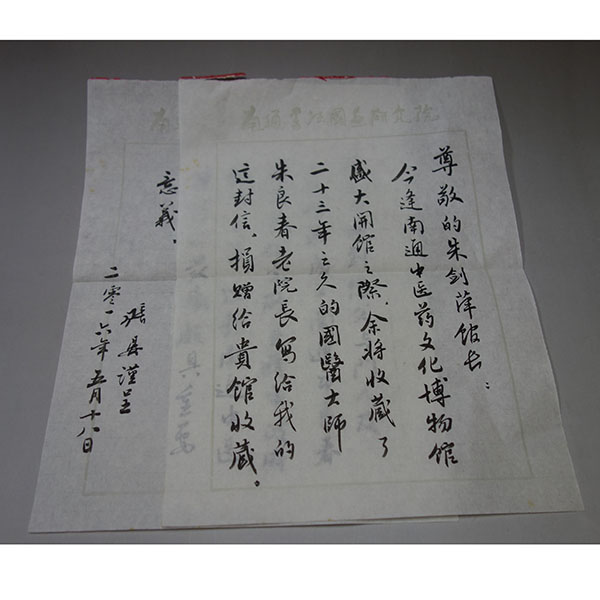 尊敬的朱剑萍馆长：
今逢南通中医药文化博物馆
盛大開館之際，余将收藏了
二十三年之久的國醫大師
朱良春老院長寫给我的
这封信，捐赠给貴館收藏。
意義。
謹呈
二零一六年五月十八日